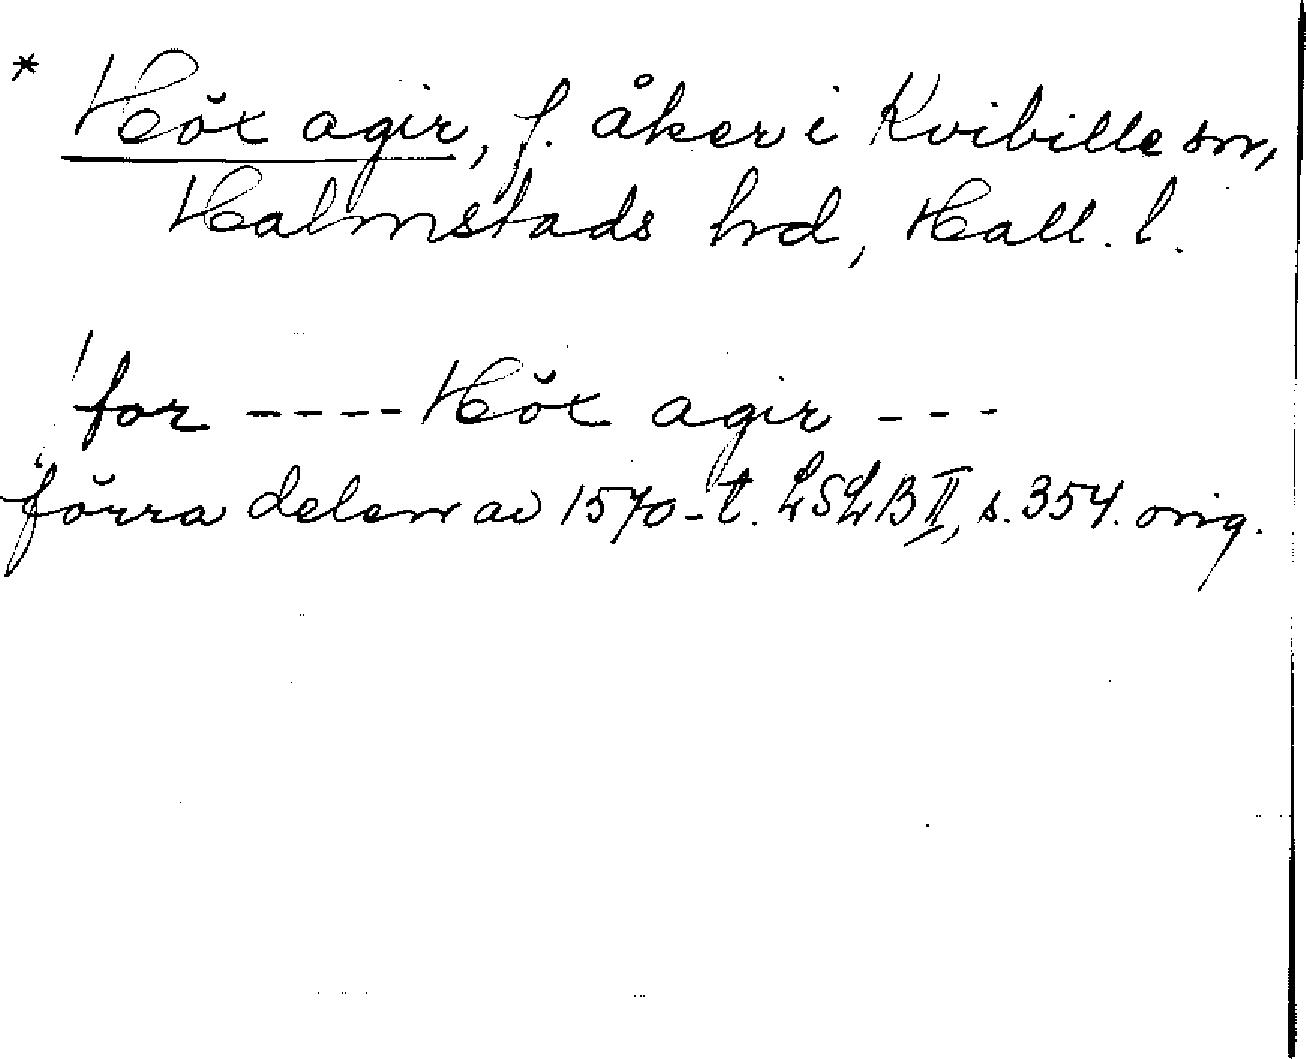 * Höx agir, f. åker i Kvibille sn,
Halmstads hrd, Hall. l.
for ---- Höx agir ---
förra delen av 1570-t. LSLB II, s. 354. orig.